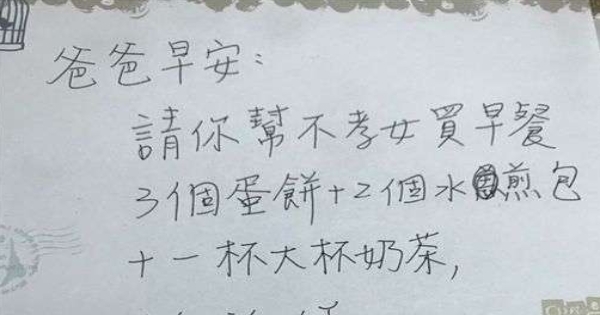 爸爸早安：
請你幫不孝女買早餐
3個蛋餅+2個水煎包
+一杯大杯奶茶,